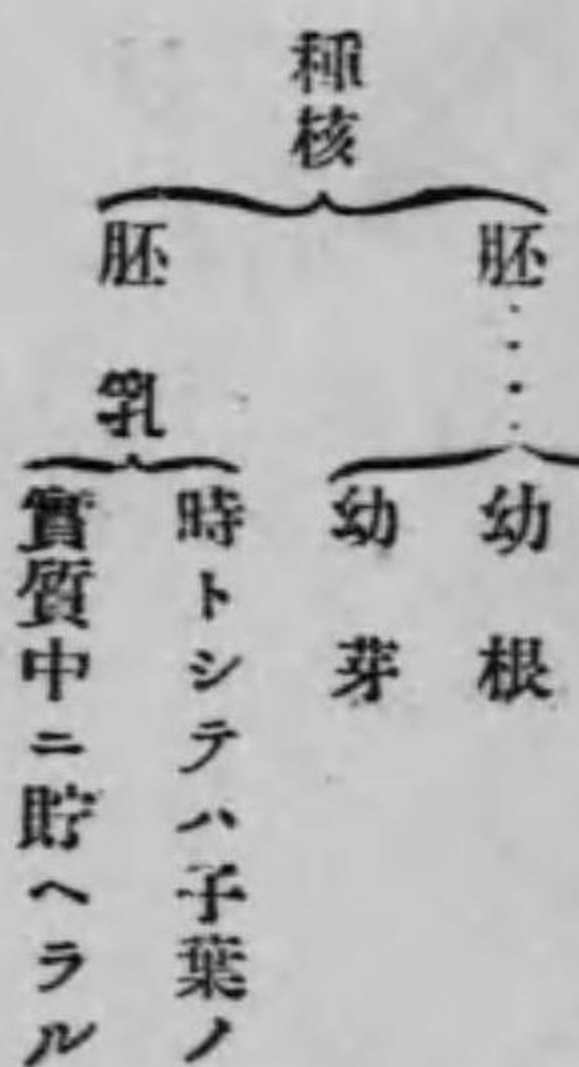 種核
胚
幼根
幼芽
胚乳
時トシテハ子葉ノ
實質中ニ貯ヘラル